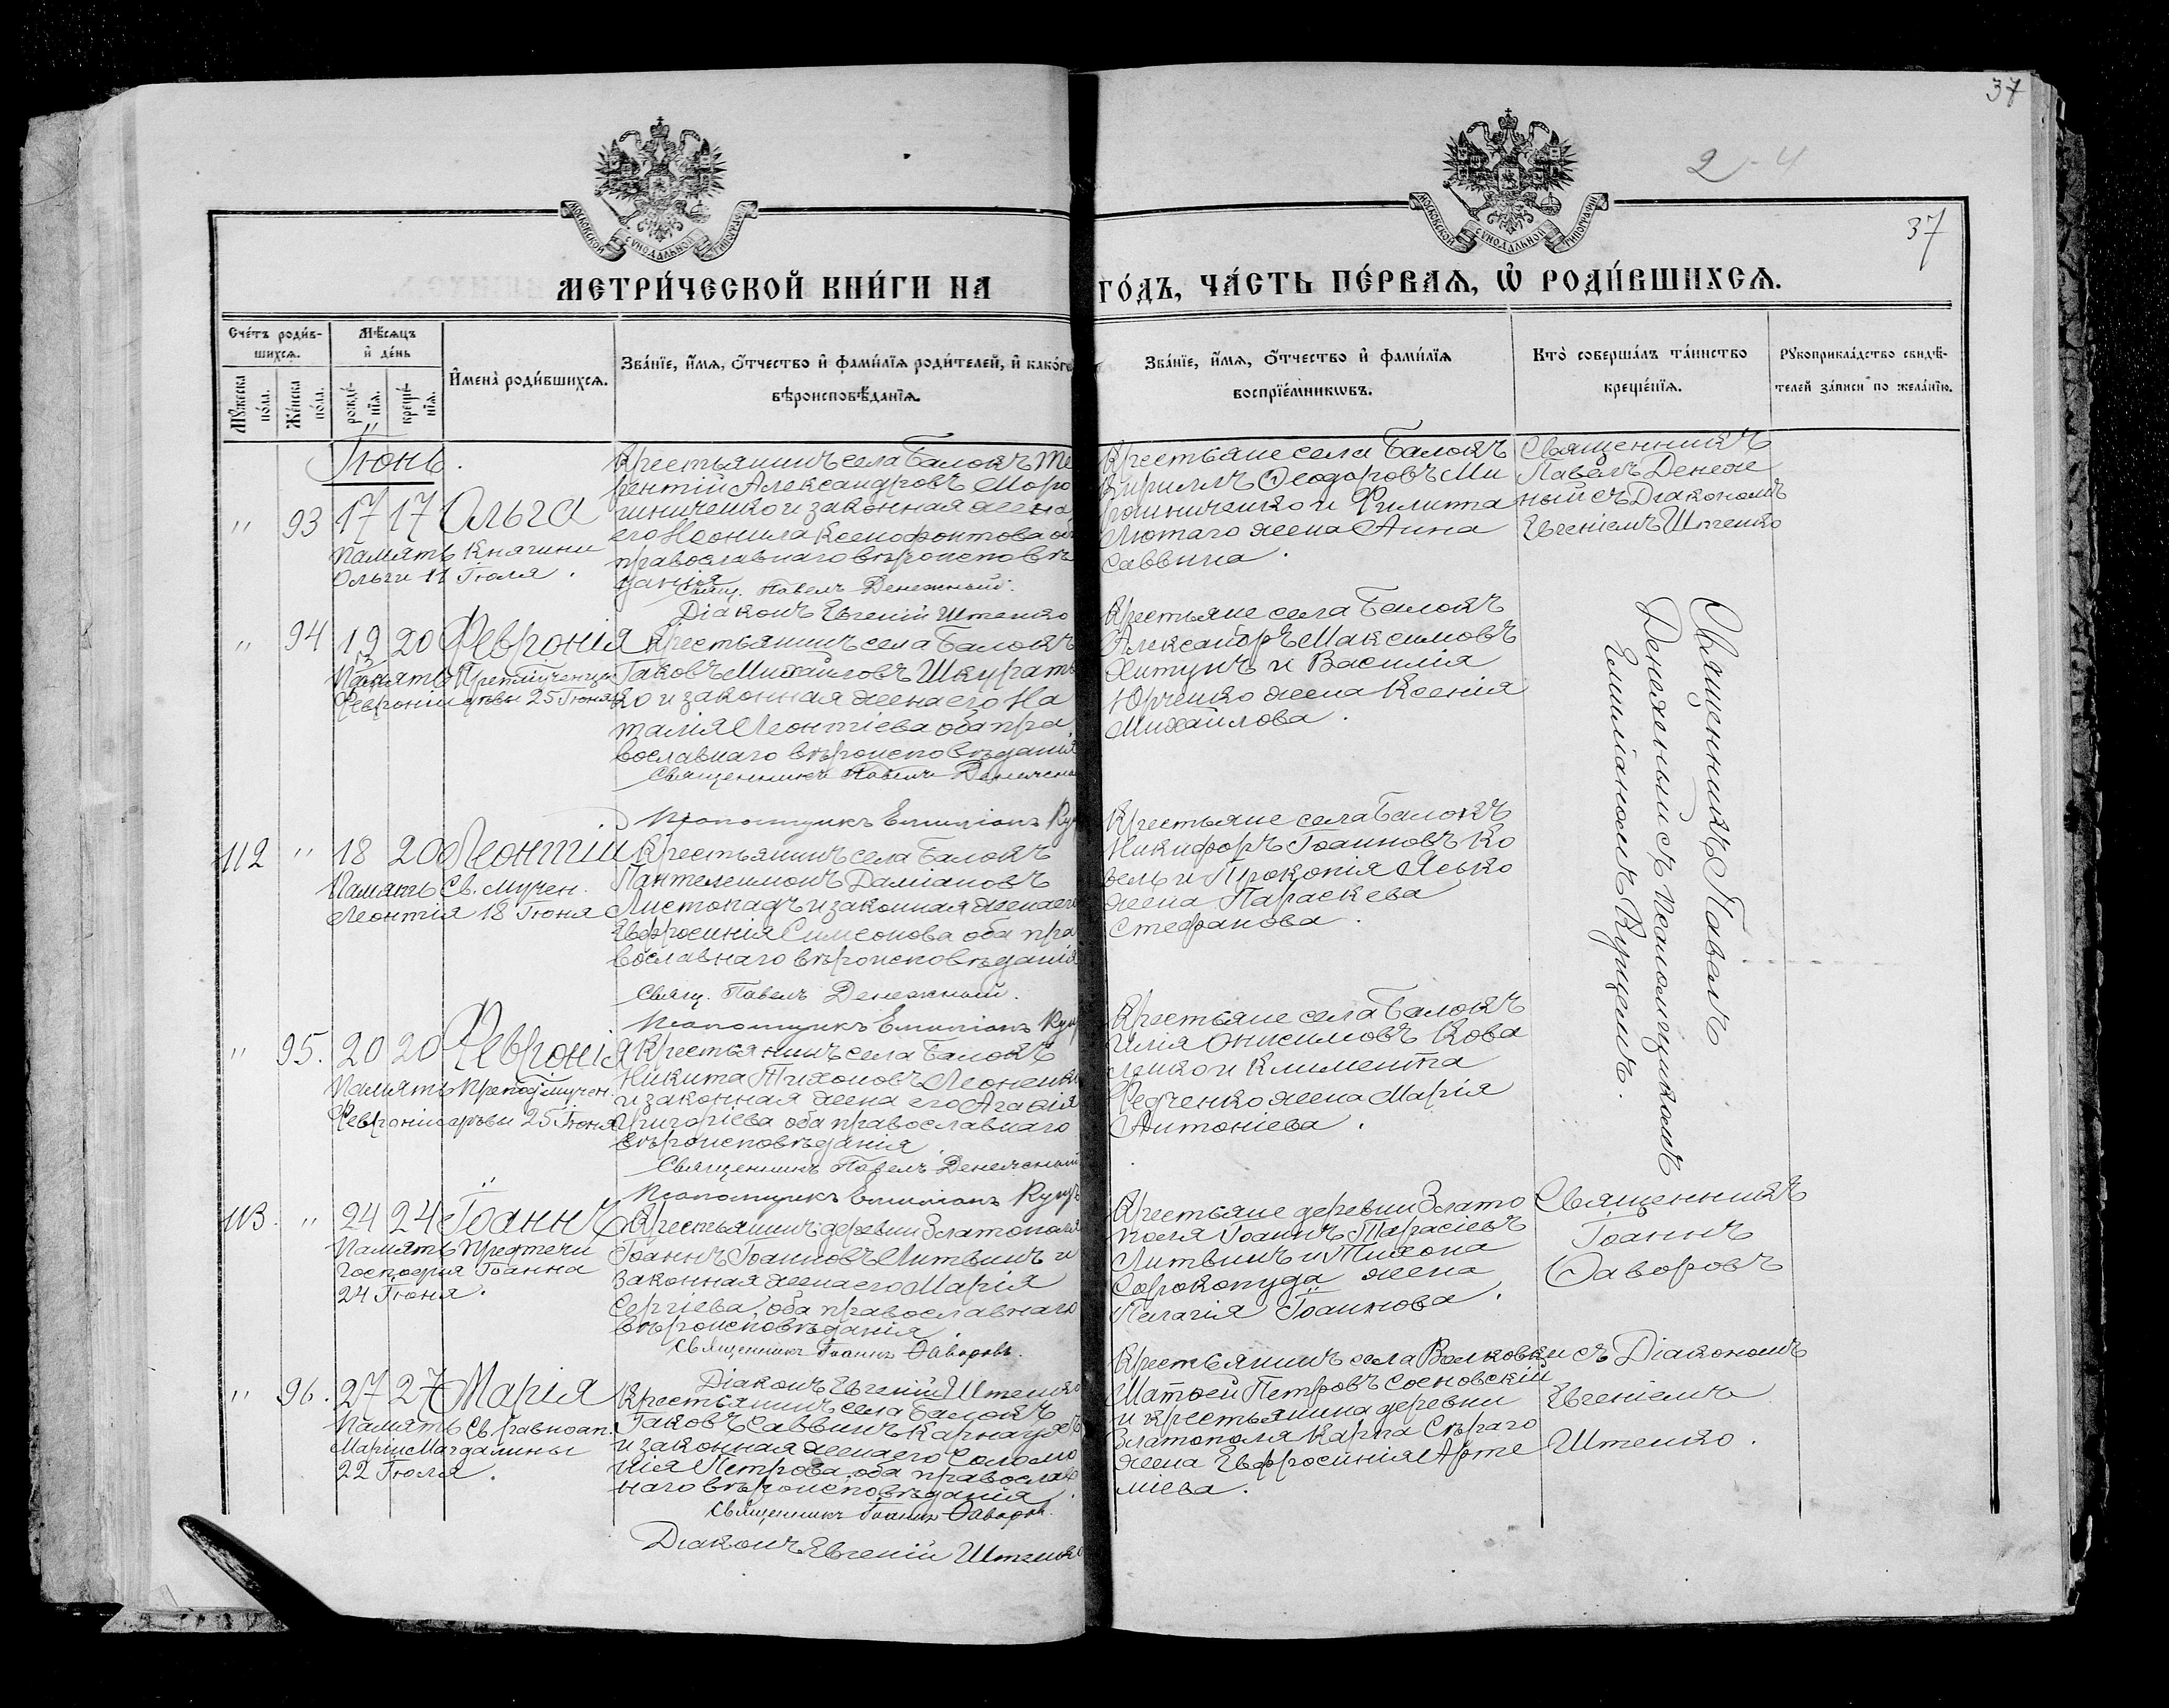 37
2-4
37
МОСКОВСКОЙ СѴНОДАЛЬНОЙ ТИПОГРАФІИ
МОСКОВСКОЙ СѴНОДАЛЬНОЙ ТИПОГРАФІИ
МЕТРИ́ЧЕСКОЙ КНИ́ГИ НА
ГО́ДЪ, ЧА́СТЬ ПЕ́РВАѦ, Ѡ҆ РОДИ́ВШИХСѦ.
Сче́тъ роди́в-
шихсѧ.
Мѣ́сѧцъ
и҆ де́нь
Мꙋ́жеска
по́ла.
Же́нска
по́ла.
рожде́-
нїѧ.
креще́-
нїѧ.
И҆мена̀ роди́вшихсѧ.
Зва́нїе, и҆́мѧ, ѻ҆́тчество и҆ фами́лїѧ роди́телей, и҆ како́гѡ
вѣроисповѣ́данїѧ.
Зва́нїе, и҆́мѧ, ѻ҆́тчество и҆ фами́лїѧ
воспрїе́мникѡвъ.
Кто̀ соверша́лъ та́инство
креще́нїѧ.
Рꙋкоприкла́дство свидѣ́-
телей за́писи по жела́нїю.
Іюнь.
" 93 17 17 Ольга
Память Княгини
Ольги 11 Іюля.
Крестьянинъ села Балокъ Те
рентій Александровъ Миро
шниченко и законная жена
его Неонила Ксенофонтова оба
православнаго вѣроисповѣ
данія
Свящ. Павелъ Денежный.
Діаконъ Евгеній Штепко
Крестьяне села Балокъ
Кириллъ Ѳеодоровъ Ми
рошниченко и Филипа
Лютаго жена Анна
Саввина.
Священникъ
Павелъ Денеж
ный съ Діакономъ
Евгеніемъ Штепко
" 94 19 20 Февронія
Память Препмученицы
Февроніи дѣвы 25 Іюня
Крестьянинъ села Балокъ
Іаковъ Михайловъ Шкурать
ко и законная жена его На
талія Леонтіева оба пра
вославнаго вѣроисповѣданія
Священникъ Павелъ Денежный
Псаломщикъ Емиліанъ Куц
Крестьяне села Балокъ
Александръ Максимовъ
Хитунъ и Василія
Юрченко жена Ксенія
Михайлова.
Священникъ Павелъ
Денежный съ псаломщикомъ
Емиліаномъ Куцемъ.
112 " 18 20 Леонтій
Память Св. мучен.
Леонтія 18 Іюня
Крестьянинъ села Балокъ
Пантелеимонъ Даміановъ
Листопадъ и законная жена его
Евфросинія Симеонова оба пра
вославнаго вѣроисповѣданія
Свящ. Павелъ Денежный.
Псаломщикъ Емиліанъ Куц
Крестьяне села Балокъ
Никифоръ Іоанновъ Ко
вель и Прокопія Ясько
жена Параскева
Стефанова.
" 95. 20 20 Февронія
Память препод. мучен.
Февроніи дѣвы 25 Іюня
Крестьянинъ села Балокъ
Никита Тихоновъ Леоненко
и законная жена его Агаѳія
Григоріева оба православнаго
вѣроисповѣданія
Священникъ Павелъ Денежный
Псаломщикъ Емиліанъ Куцъ
Крестьяне села Балокъ
Илія Онисимовъ Кова
ленко и Климента
Федченко жена Марія
Антоніева.
113. " 24 24 Іоаннъ
Память Предтечи
Господня Іоанна
24 Іюня.
Крестьянинъ деревни Златополя
Іоаннъ Іоанновъ Литвинъ и
законная жена его Марія
Сергіева, оба православнаго
вѣроисповѣданія.
Священникъ Іоаннъ Ѳаворовъ.
Діаконъ Евгеній Штепко
Крестьяне деревни Злато
поля Іоаннъ Тарасіевъ
Литвинъ и Тихона
Сорокопуда жена
Пелагія Іоаннова.
Священникъ
Іоаннъ
Ѳаворовъ
съ Діакономъ
Евгеніемъ
Штепко.
" 96. 27 27 Марія
Память Св. равноап.
Маріи Магдалины
22 Іюля.
Крестьянинъ села Балокъ
Іаковъ Саввинъ Карнаухъ
и законная жена его Соломо
нія Петрова, оба православ
наго вѣроисповѣданія.
Священникъ Іоаннъ Ѳаворовъ.
Діаконъ Евгеній Штепко
Крестьянинъ села Волковки
Матѳей Петровъ Сосновскій
и крестьянина деревни
Златополя Карпа Сѣраго
жена Евфросинія Арте
міева.